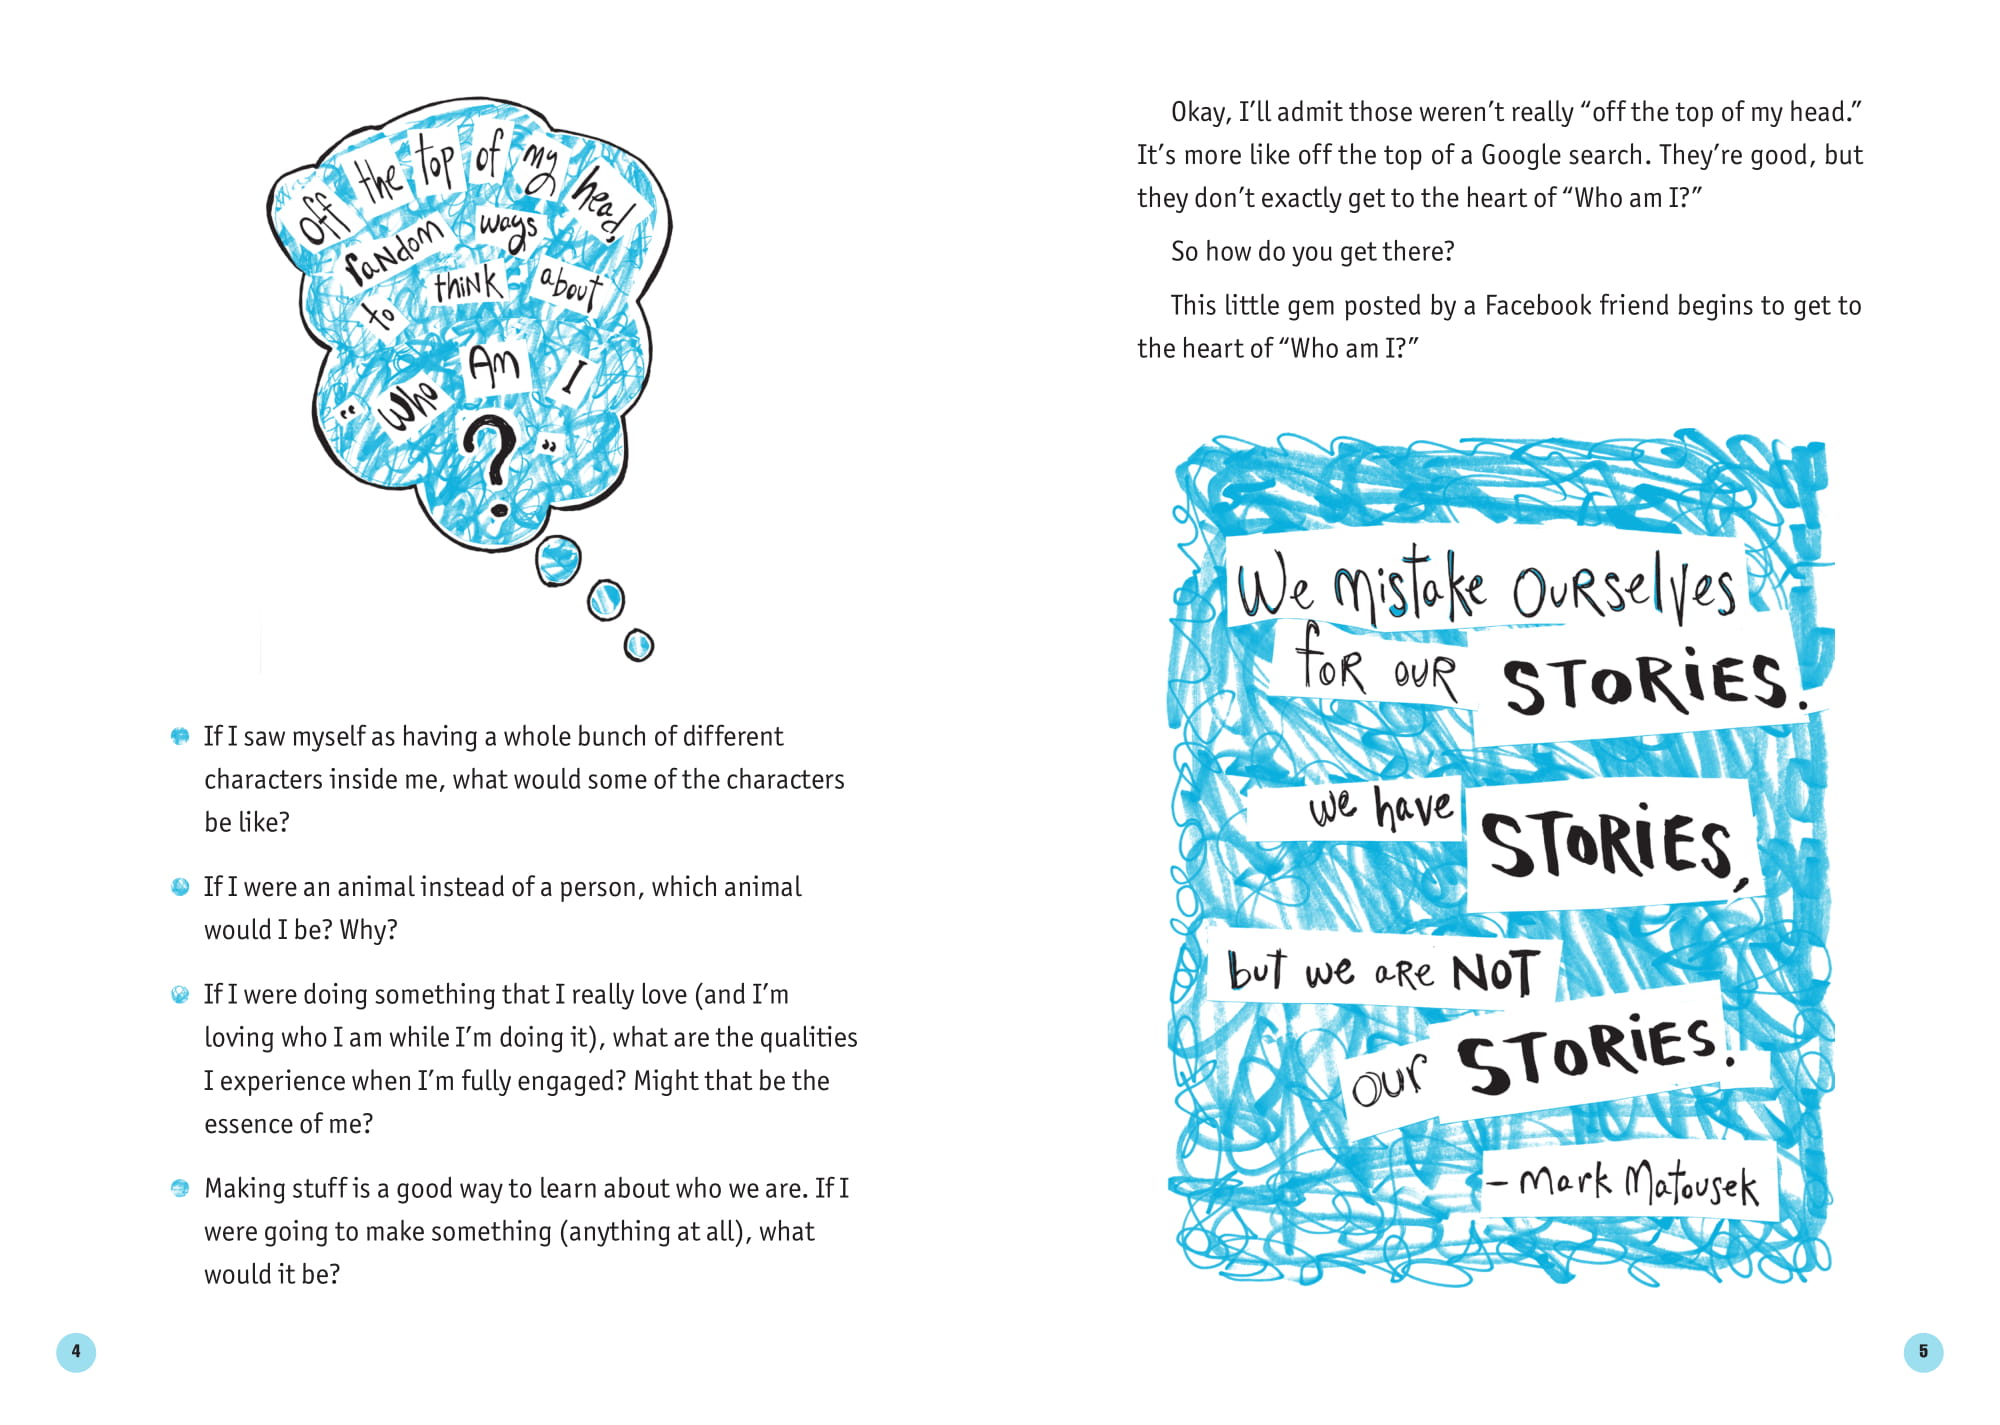 Off the top of my head,
random ways
to think about
“Who Am I
?”
If I saw myself as having a whole bunch of different
characters inside me, what would some of the characters
be like?
If I were an animal instead of a person, which animal
would I be? Why?
If I were doing something that I really love (and I’m
loving who I am while I’m doing it), what are the qualities
I experience when I’m fully engaged? Might that be the
essence of me?
Making stuff is a good way to learn about who we are. If I
were going to make something (anything at all), what
would it be?
4
Okay, I’ll admit those weren’t really “off the top of my head.”
It’s more like off the top of a Google search. They’re good, but
they don’t exactly get to the heart of “Who am I?”
So how do you get there?
This little gem posted by a Facebook friend begins to get to
the heart of “Who am I?”
We mistake ourselves
for our STORiES.
we have STORiES,
but we are NOT
our STORiES.
– Mark Matousek
5